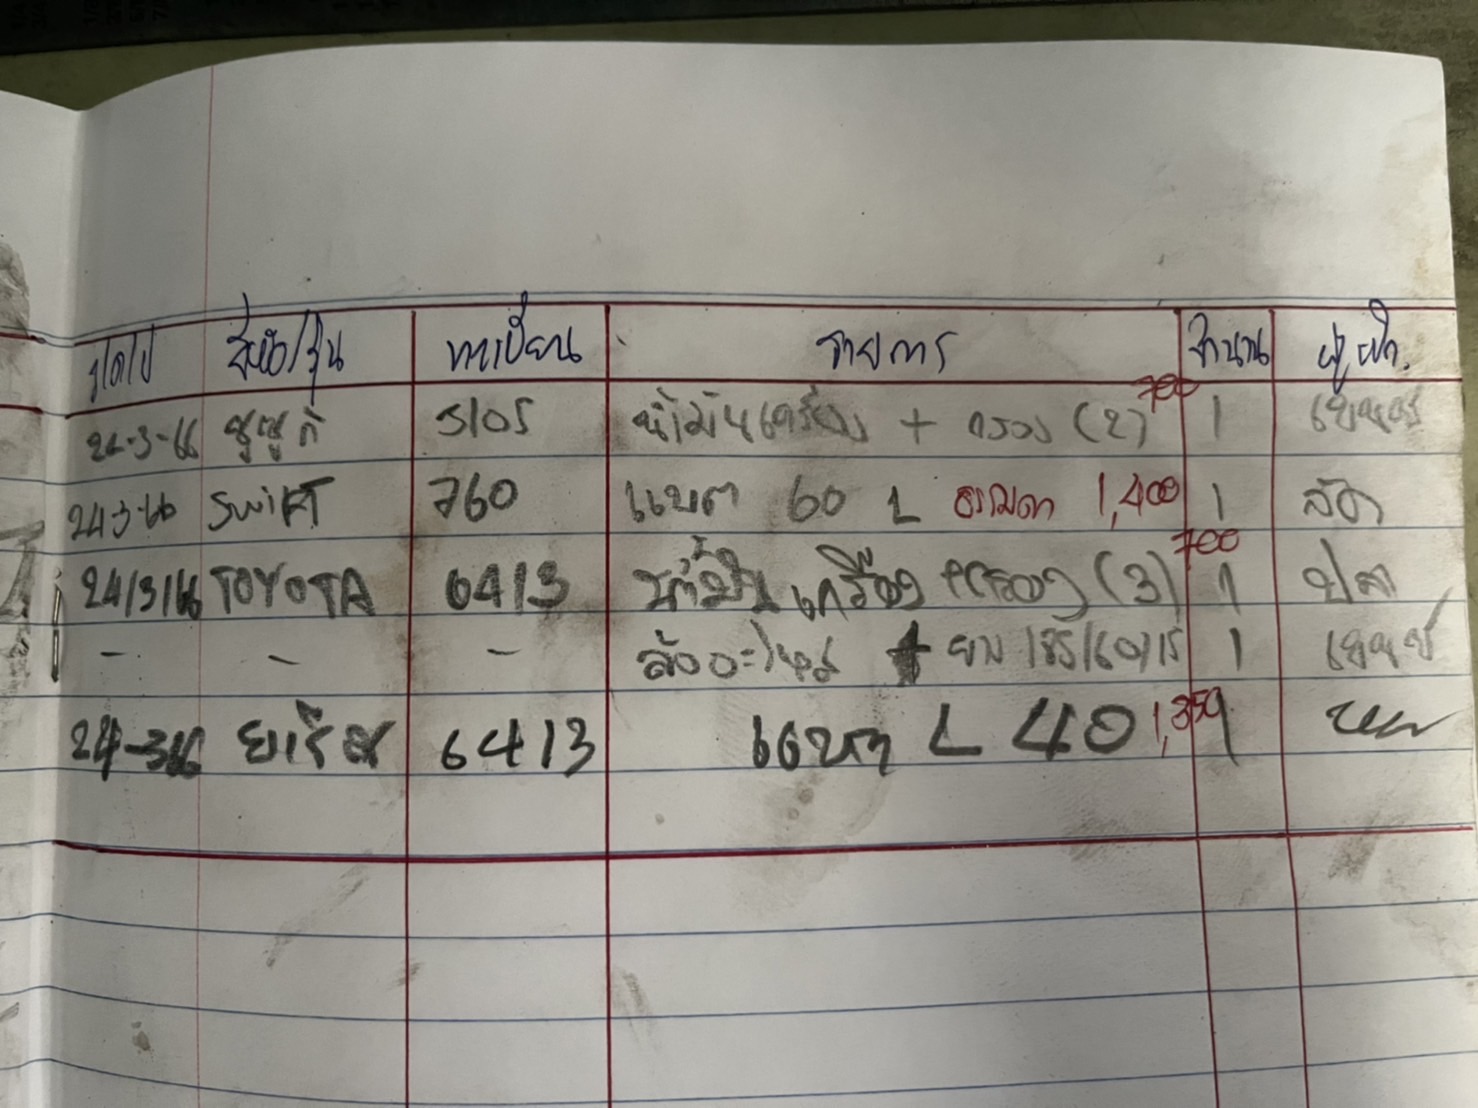 ว/ด/ป ยี่ห้อ/รุ่น ทะเบียน รายการ จำนวน ผู้เบิก.
24-3-66 ซูซูกิ 5105 น้ำมันเครื่อง + กรอง (2) 700 1
24-3-66 SWIFT 760 แบต 60 L ธรรมดา 1,400 1
24/3/66 TOYOTA 6413 น้ำมันเครื่อง กรอง (3) 700 1 ปลา
- - - ยาง 185/60/15 1
24-366 ยาริส 6413 L 40 1,350 1